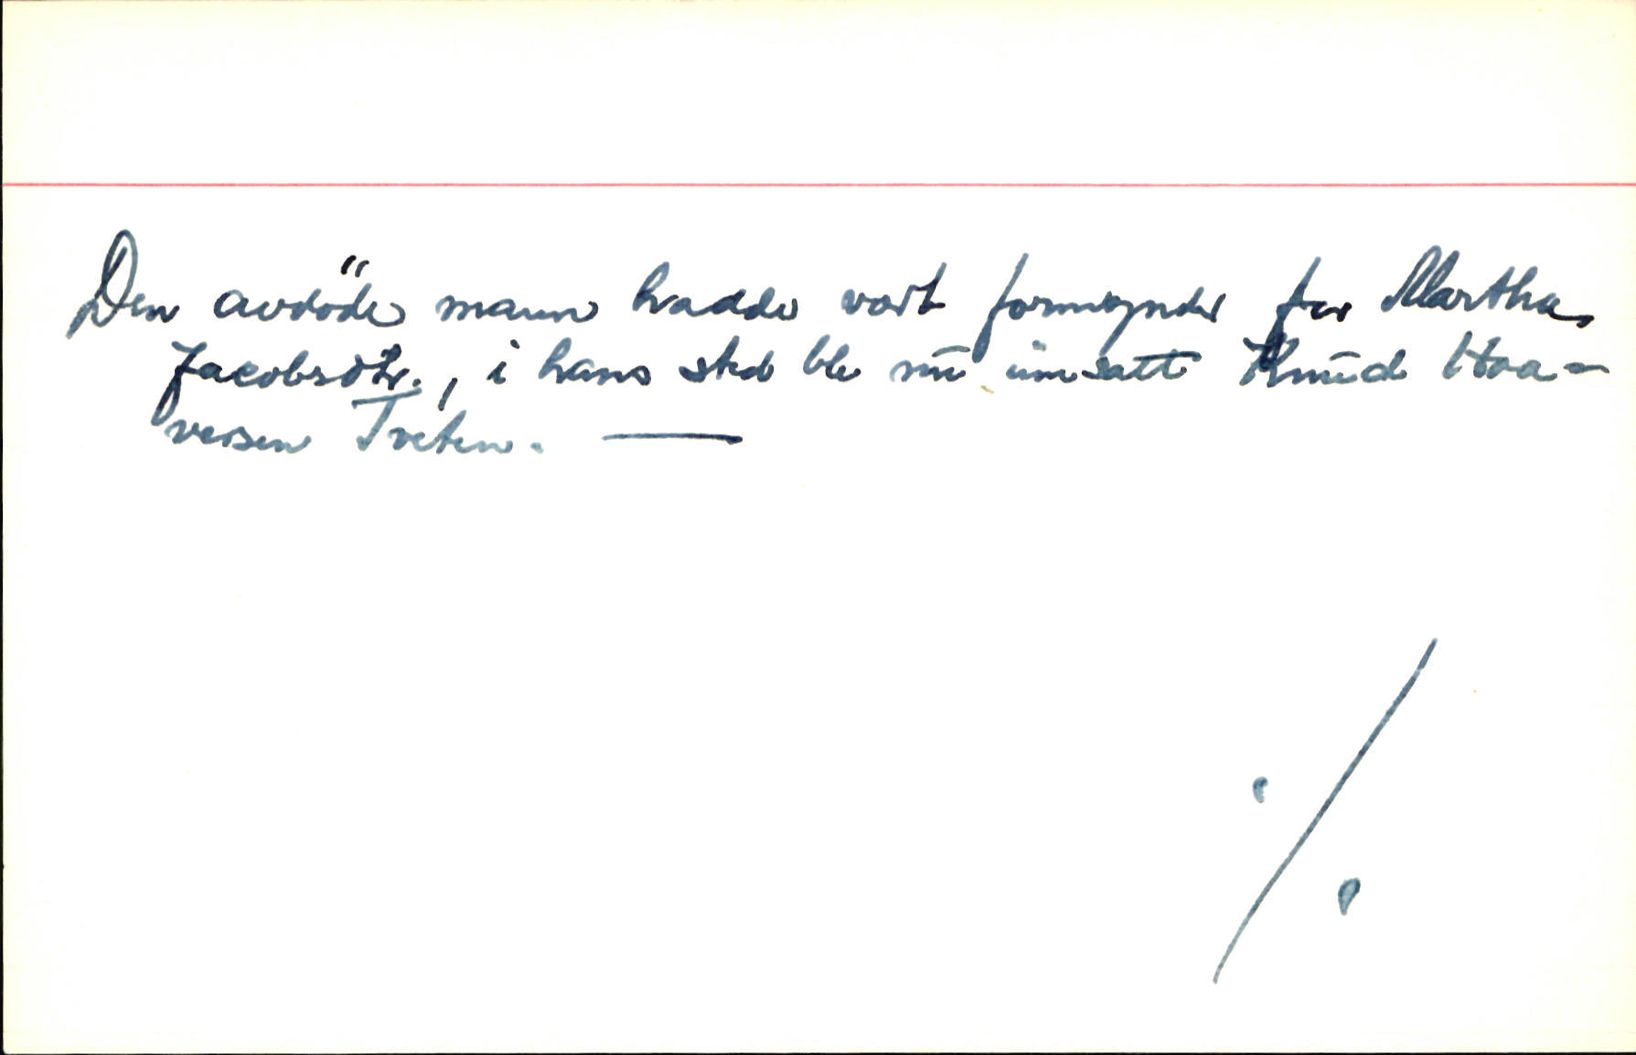 Den avdöde mann hadde vart formynder for Martha
Jacobsdtr., i hans sted ble nu innsatt Knud Haa-
versen Tveten. —
./.